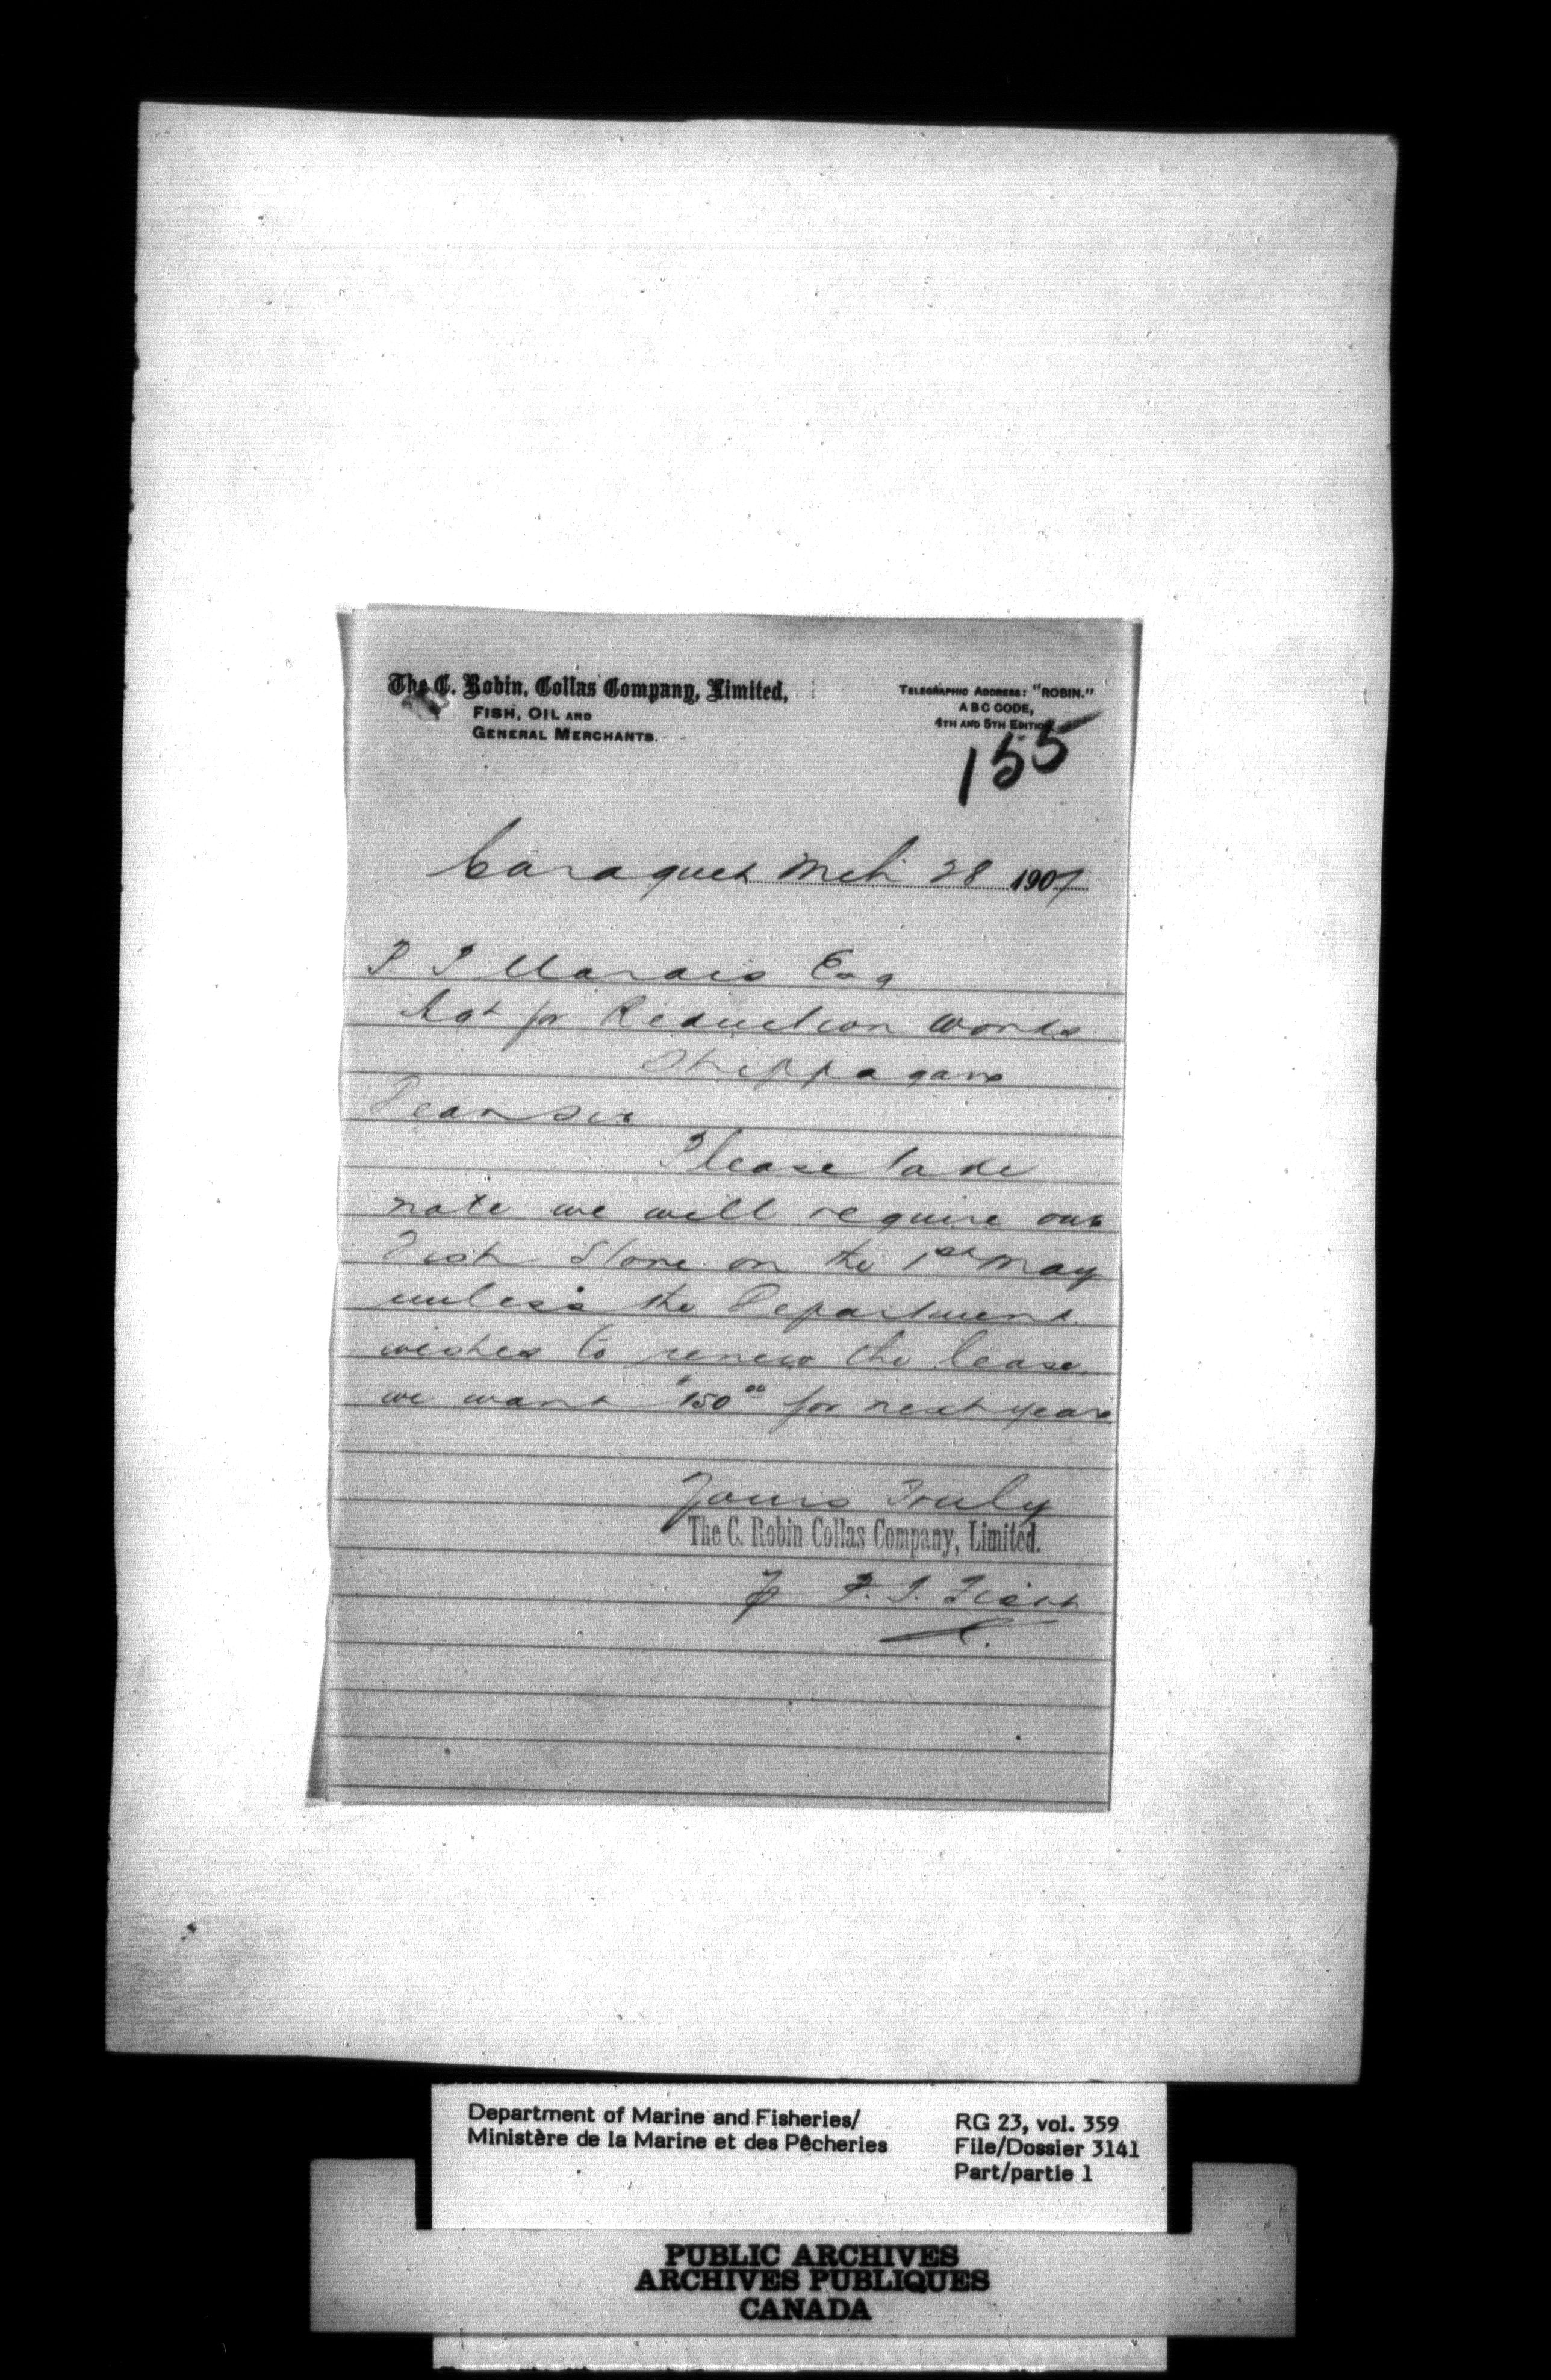 The C. Robin, Collas Company, Limited,
FISH, OIL AND
GENERAL MERCHANTS.
TELEGRAPHIC ADDRESS: "ROBIN."
A B C CODE,
4TH AND 5TH EDITION
155
Caraquet Mch 28 1907
P. P. Marais Esq
Agt for Reduction Works
Shippagan
Dear Sir
Please take
note we will require our
Fish Store on the 1st May
unless the Department
wishes to renew the lease.
we want $150 00 for next year
Yours Truly
The C. Robin Collas Company, Limited.
Department of Marine and Fisheries/
Ministère de la Marine et des Pêcheries
RG 23, vol. 359
File/Dossier 3141
Part/partie 1
PUBLIC ARCHIVES
ARCHIVES PUBLIQUES
CANADA